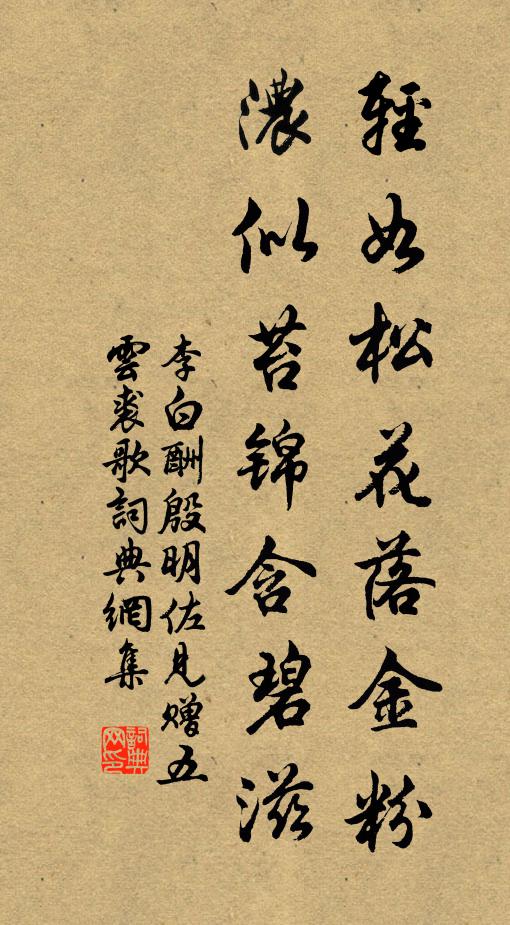 輕如松花落金粉
濃似苔錦含碧滋
李白酬殷明佐見贈五
雲裘歌詞典網集
詞典
网印